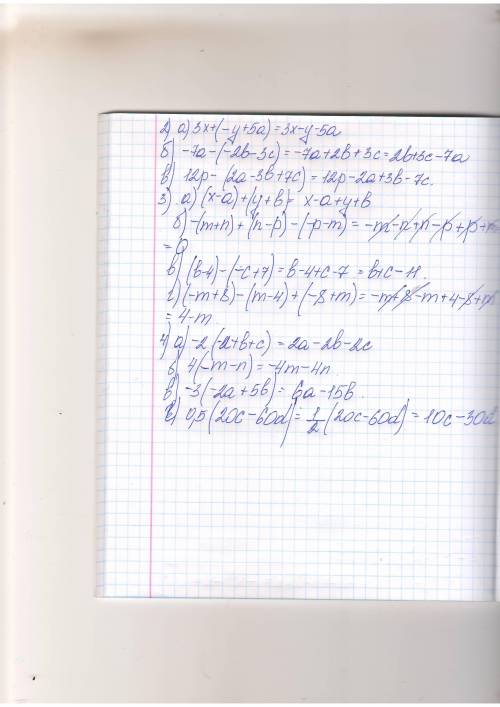 2) а) 3x+(-y+5a)=3x-y-5a
б) -7a-(-2b-3c)=-7a+2b+3c=2b+3c-7a
в) 12p-(2a-3b+7c)=12p-2a+3b-7c.
3) а) (x-a)+(y+b)= x-a+y+b
б) -(m+n)+(n-p)-(-p-m)=-m-n+n-p+p+m
=0
в) (b-4)-(-c+7)=b-4+c-7=b+c-11.
г) (-m+8)-(m-4)+(-8+m)=-m+8-m+4-8+m
=4-m
4) а) -2(-a+b+c)=2a-2b-2c
б) 4(-m-n)=-4m-4n.
в) -3(-2a+5b)=6a-15b.
г) 0,5(20c-60d)=1/2(20c-60d)=10c-30d